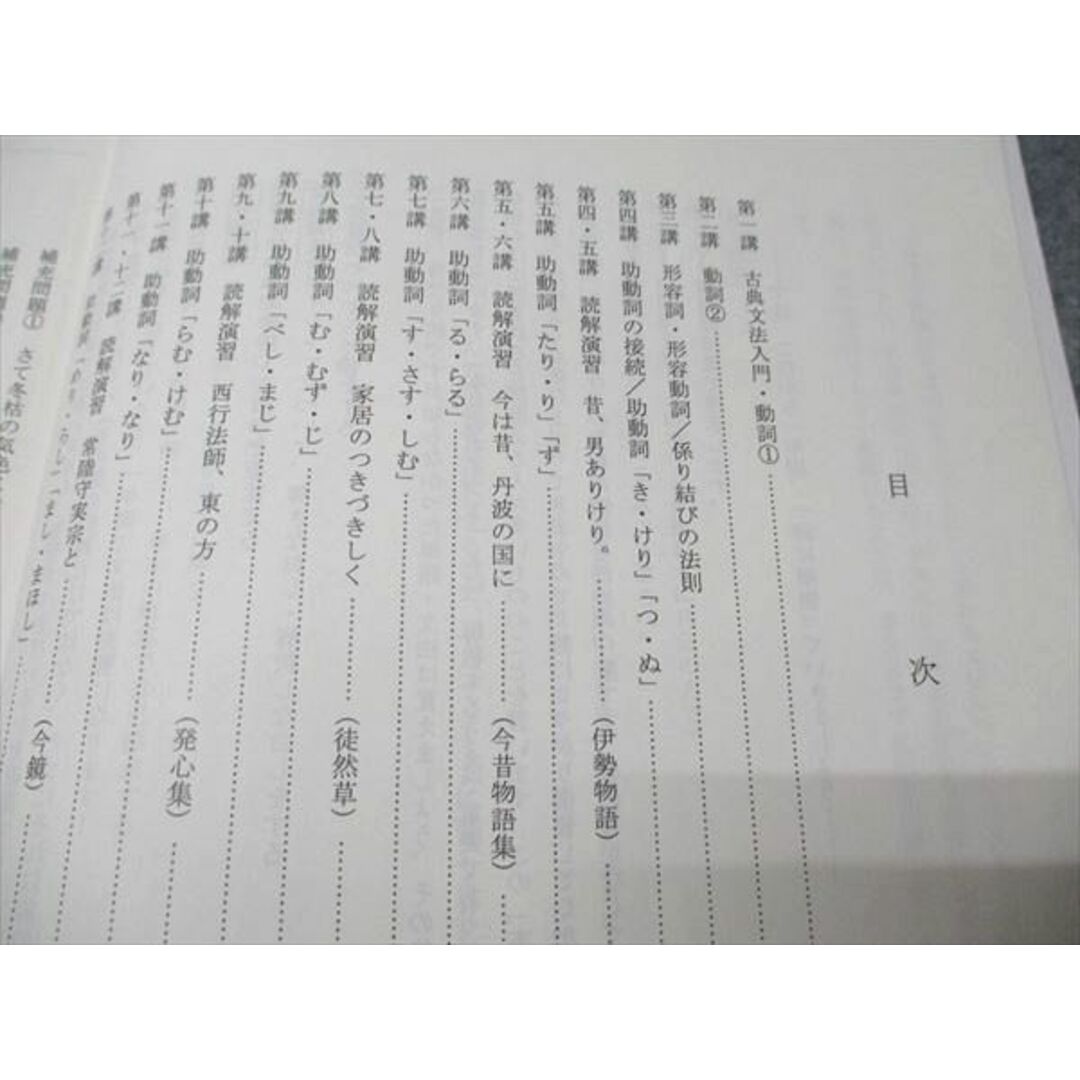 目次
第一講 古典文法入門・動詞①
第二講 動詞②
第三講 形容詞・形容動詞／係り結びの法則
第四講 助動詞の接続／助動詞「き・けり」「つ・ぬ」
第四・五講 読解演習 昔、男ありけり。 （伊勢物語）
第五講 助動詞「たり・り」「ず」
第五・六講 読解演習 今は昔、丹波の国に （今昔物語集）
第六講 助動詞「る・らる」
第七講 助動詞「す・さす・しむ」
第七・八講 読解演習 家居のつきづきしく （徒然草）
第八講 助動詞「む・むず・じ」
第九講 助動詞「べし・まじ」
第九・十講 読解演習 西行法師、東の方 （発心集）
第十講 助動詞「らむ・けむ」
第十一講 助動詞「なり・なり」
第十一・十二講 読解演習 常陸守実宗と （今鏡）
「まし・まほし」
補充問題① さて冬枯の気色
補充問題